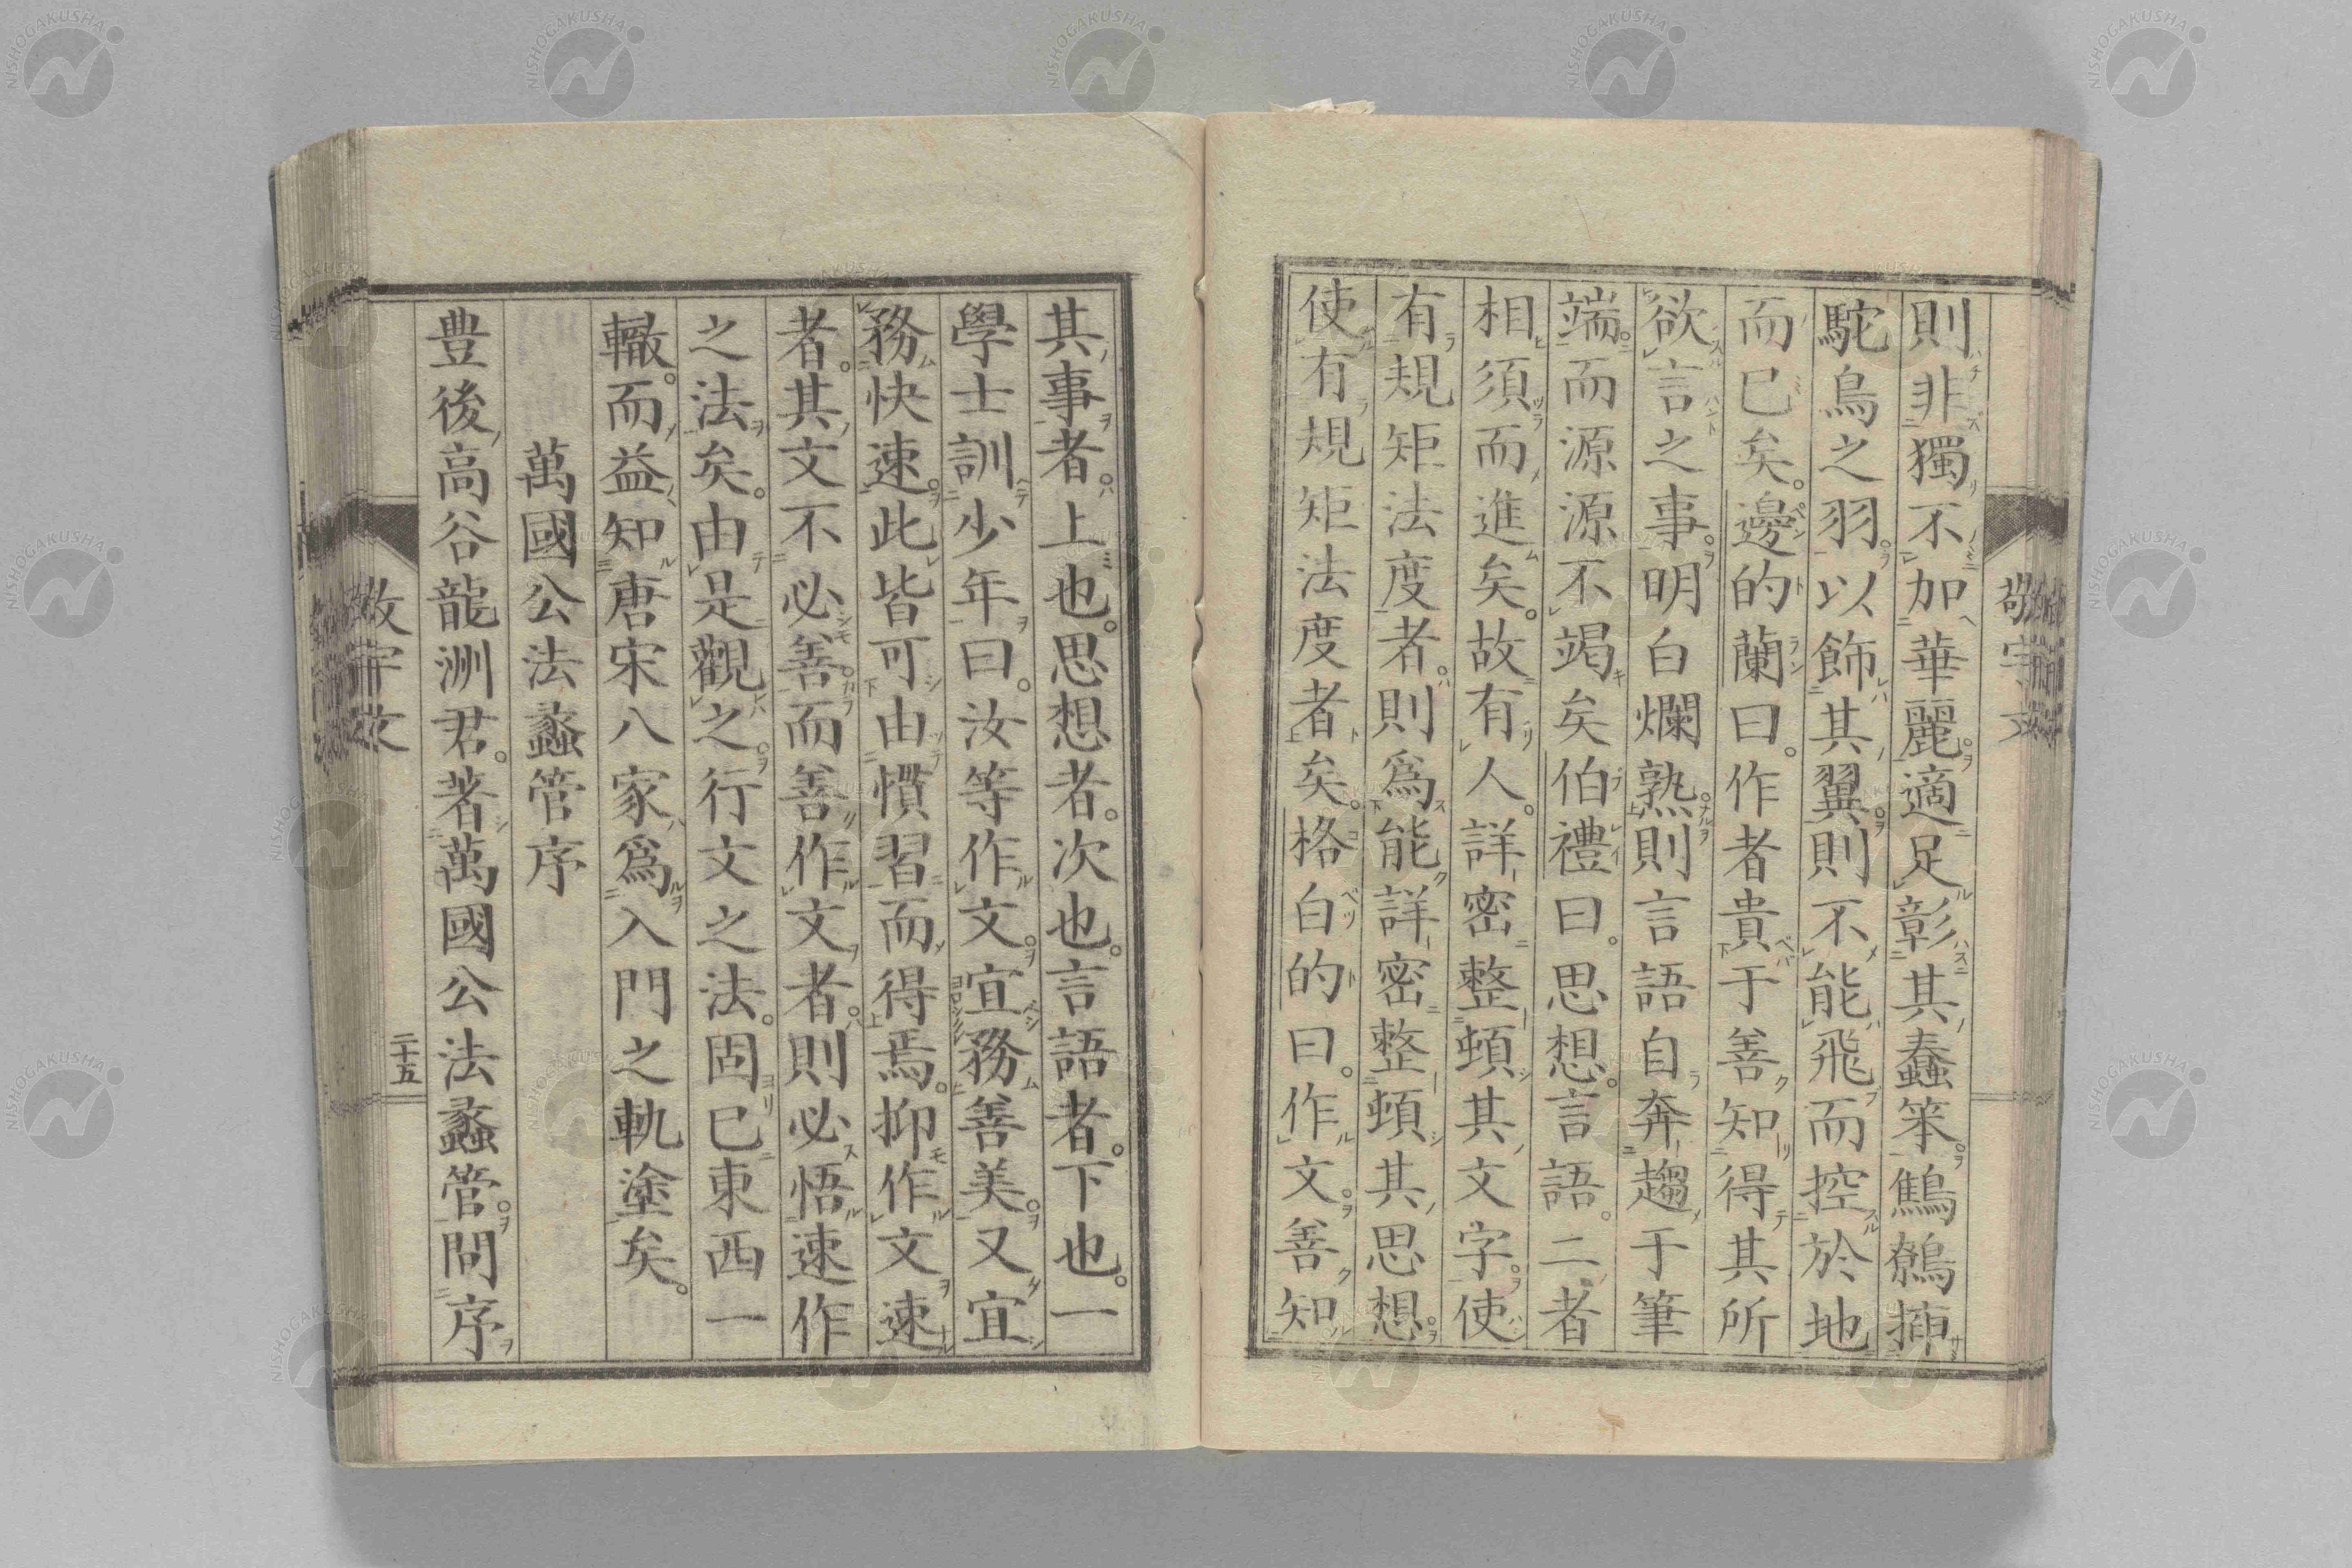 則非獨不加華麗。適足彰其蠢笨。鷦鷯插
駝鳥之羽。以飾其翼。則不能飛而控於地
而已矣。邊的蘭曰。作者貴于善知得其所
欲言之事。明白爛熟。則言語自奔趨于筆
端。而源源不竭矣伯禮曰。思想。言語。二者
相須而進矣。故有人。詳密整頓其文字。使
有規矩法度者。則爲能詳密整頓其思想。
使有規矩法度者矣。格白的曰。作文。善知
其事者。上也。思想者。次也。言語者。下也。一
學士訓少年曰。汝等作文。宜務善美。又宜
務快速。此皆可由慣習而得焉。抑作文速
者。其文不必善。而善作文者。則必悟速作
之法矣。由是觀之。行文之法。固已東西一
轍。而益知唐宋八家爲入門之軌塗矣。
萬國公法蠡管序
豊後高谷龍洲君。著萬國公法蠡管。問序
敬宇文
二十五